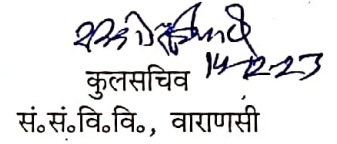 14-12-23
कुलसचिव
सं॰सं॰वि॰वि॰, वाराणसी